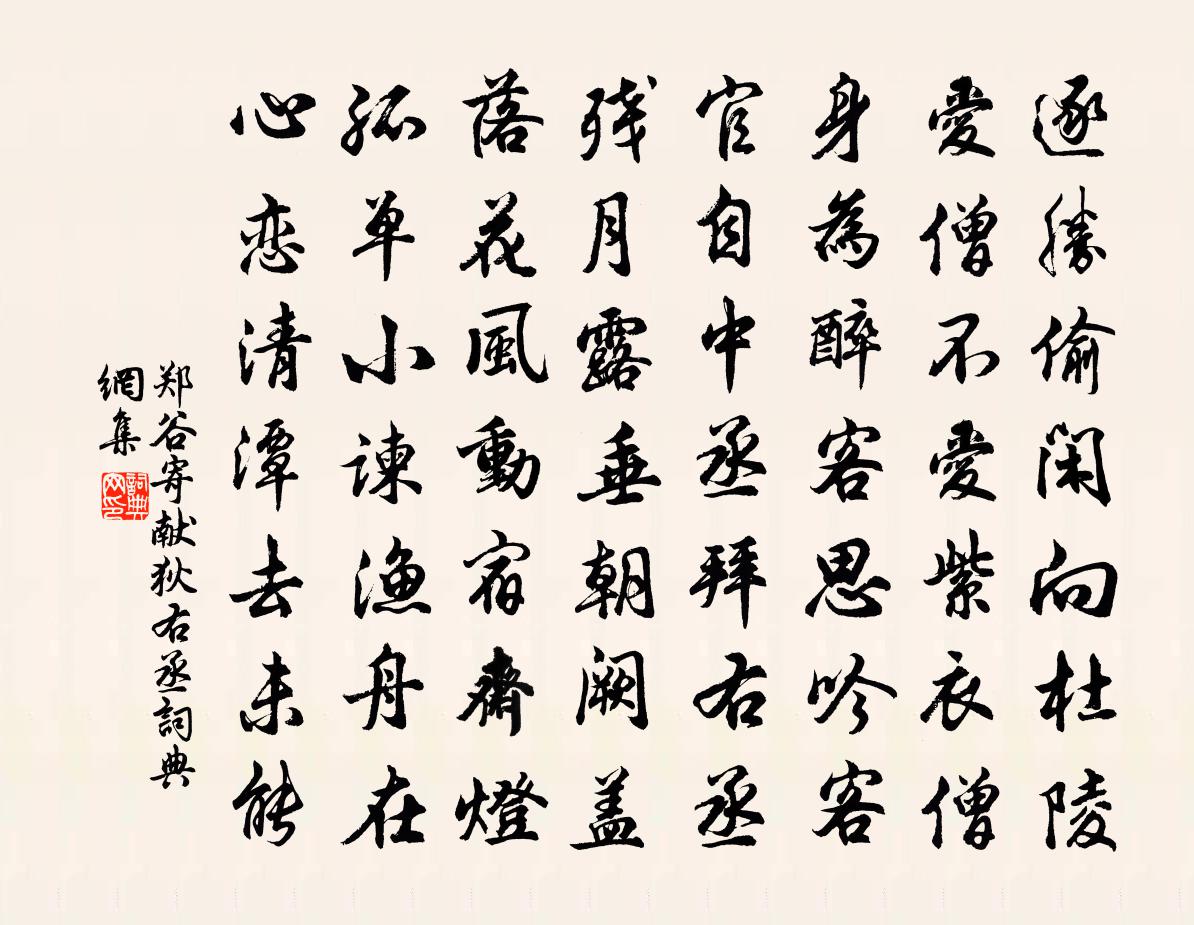 逐勝偷閑向杜陵
愛僧不愛紫衣僧
身為醉客思吟客
官自中丞拜右丞
残月露垂朝阙盖
落花風動宿齋燈
孤单小諫漁舟在
心恋清潭去未能
郑谷寄献狄右丞詞典
網集
詞典
网印